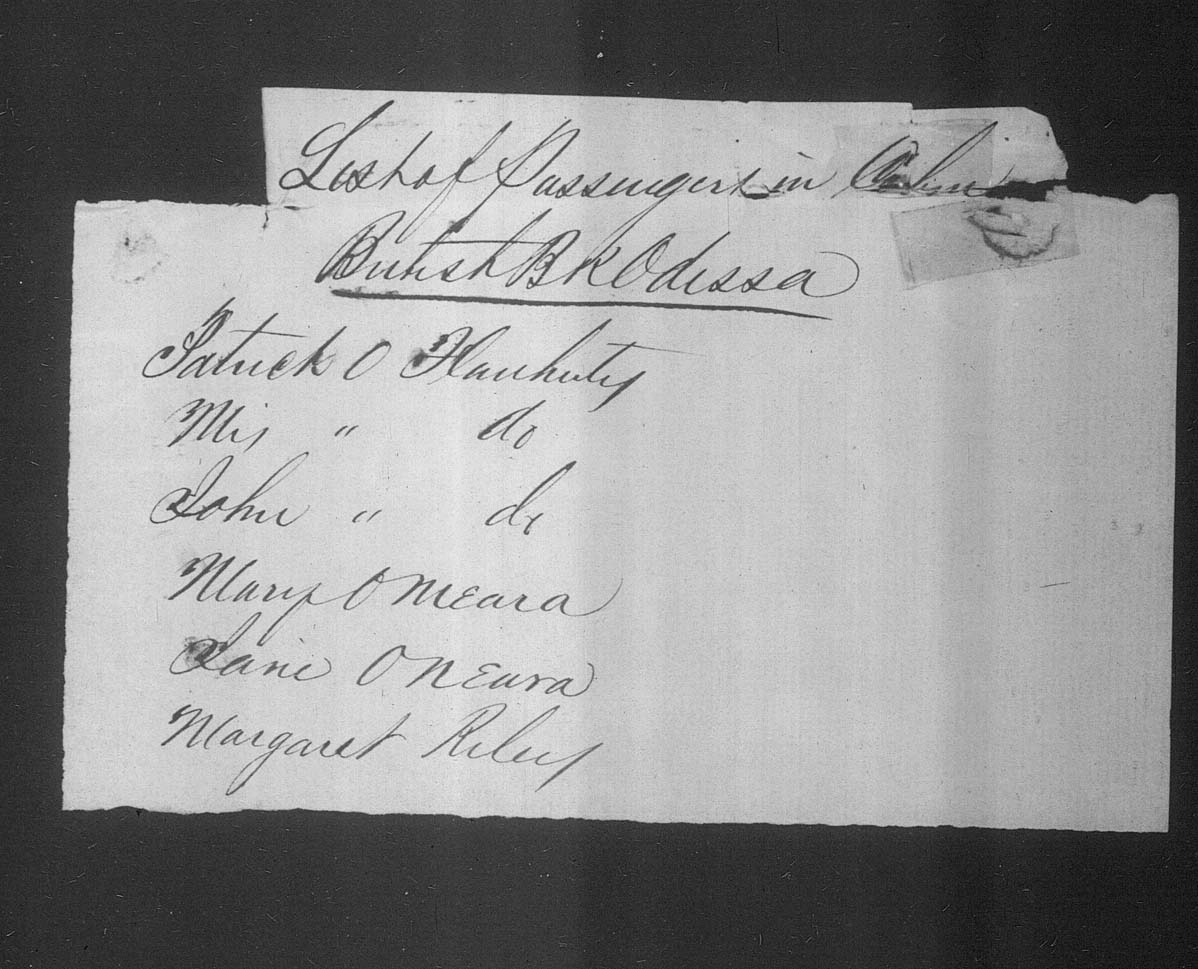 List of Passengers in Cabin
British Bk Odessa
Patrick O Flauhuty
Mrs " do
John " do
Mary O Meara
Jane O Neara
Margaret Riley